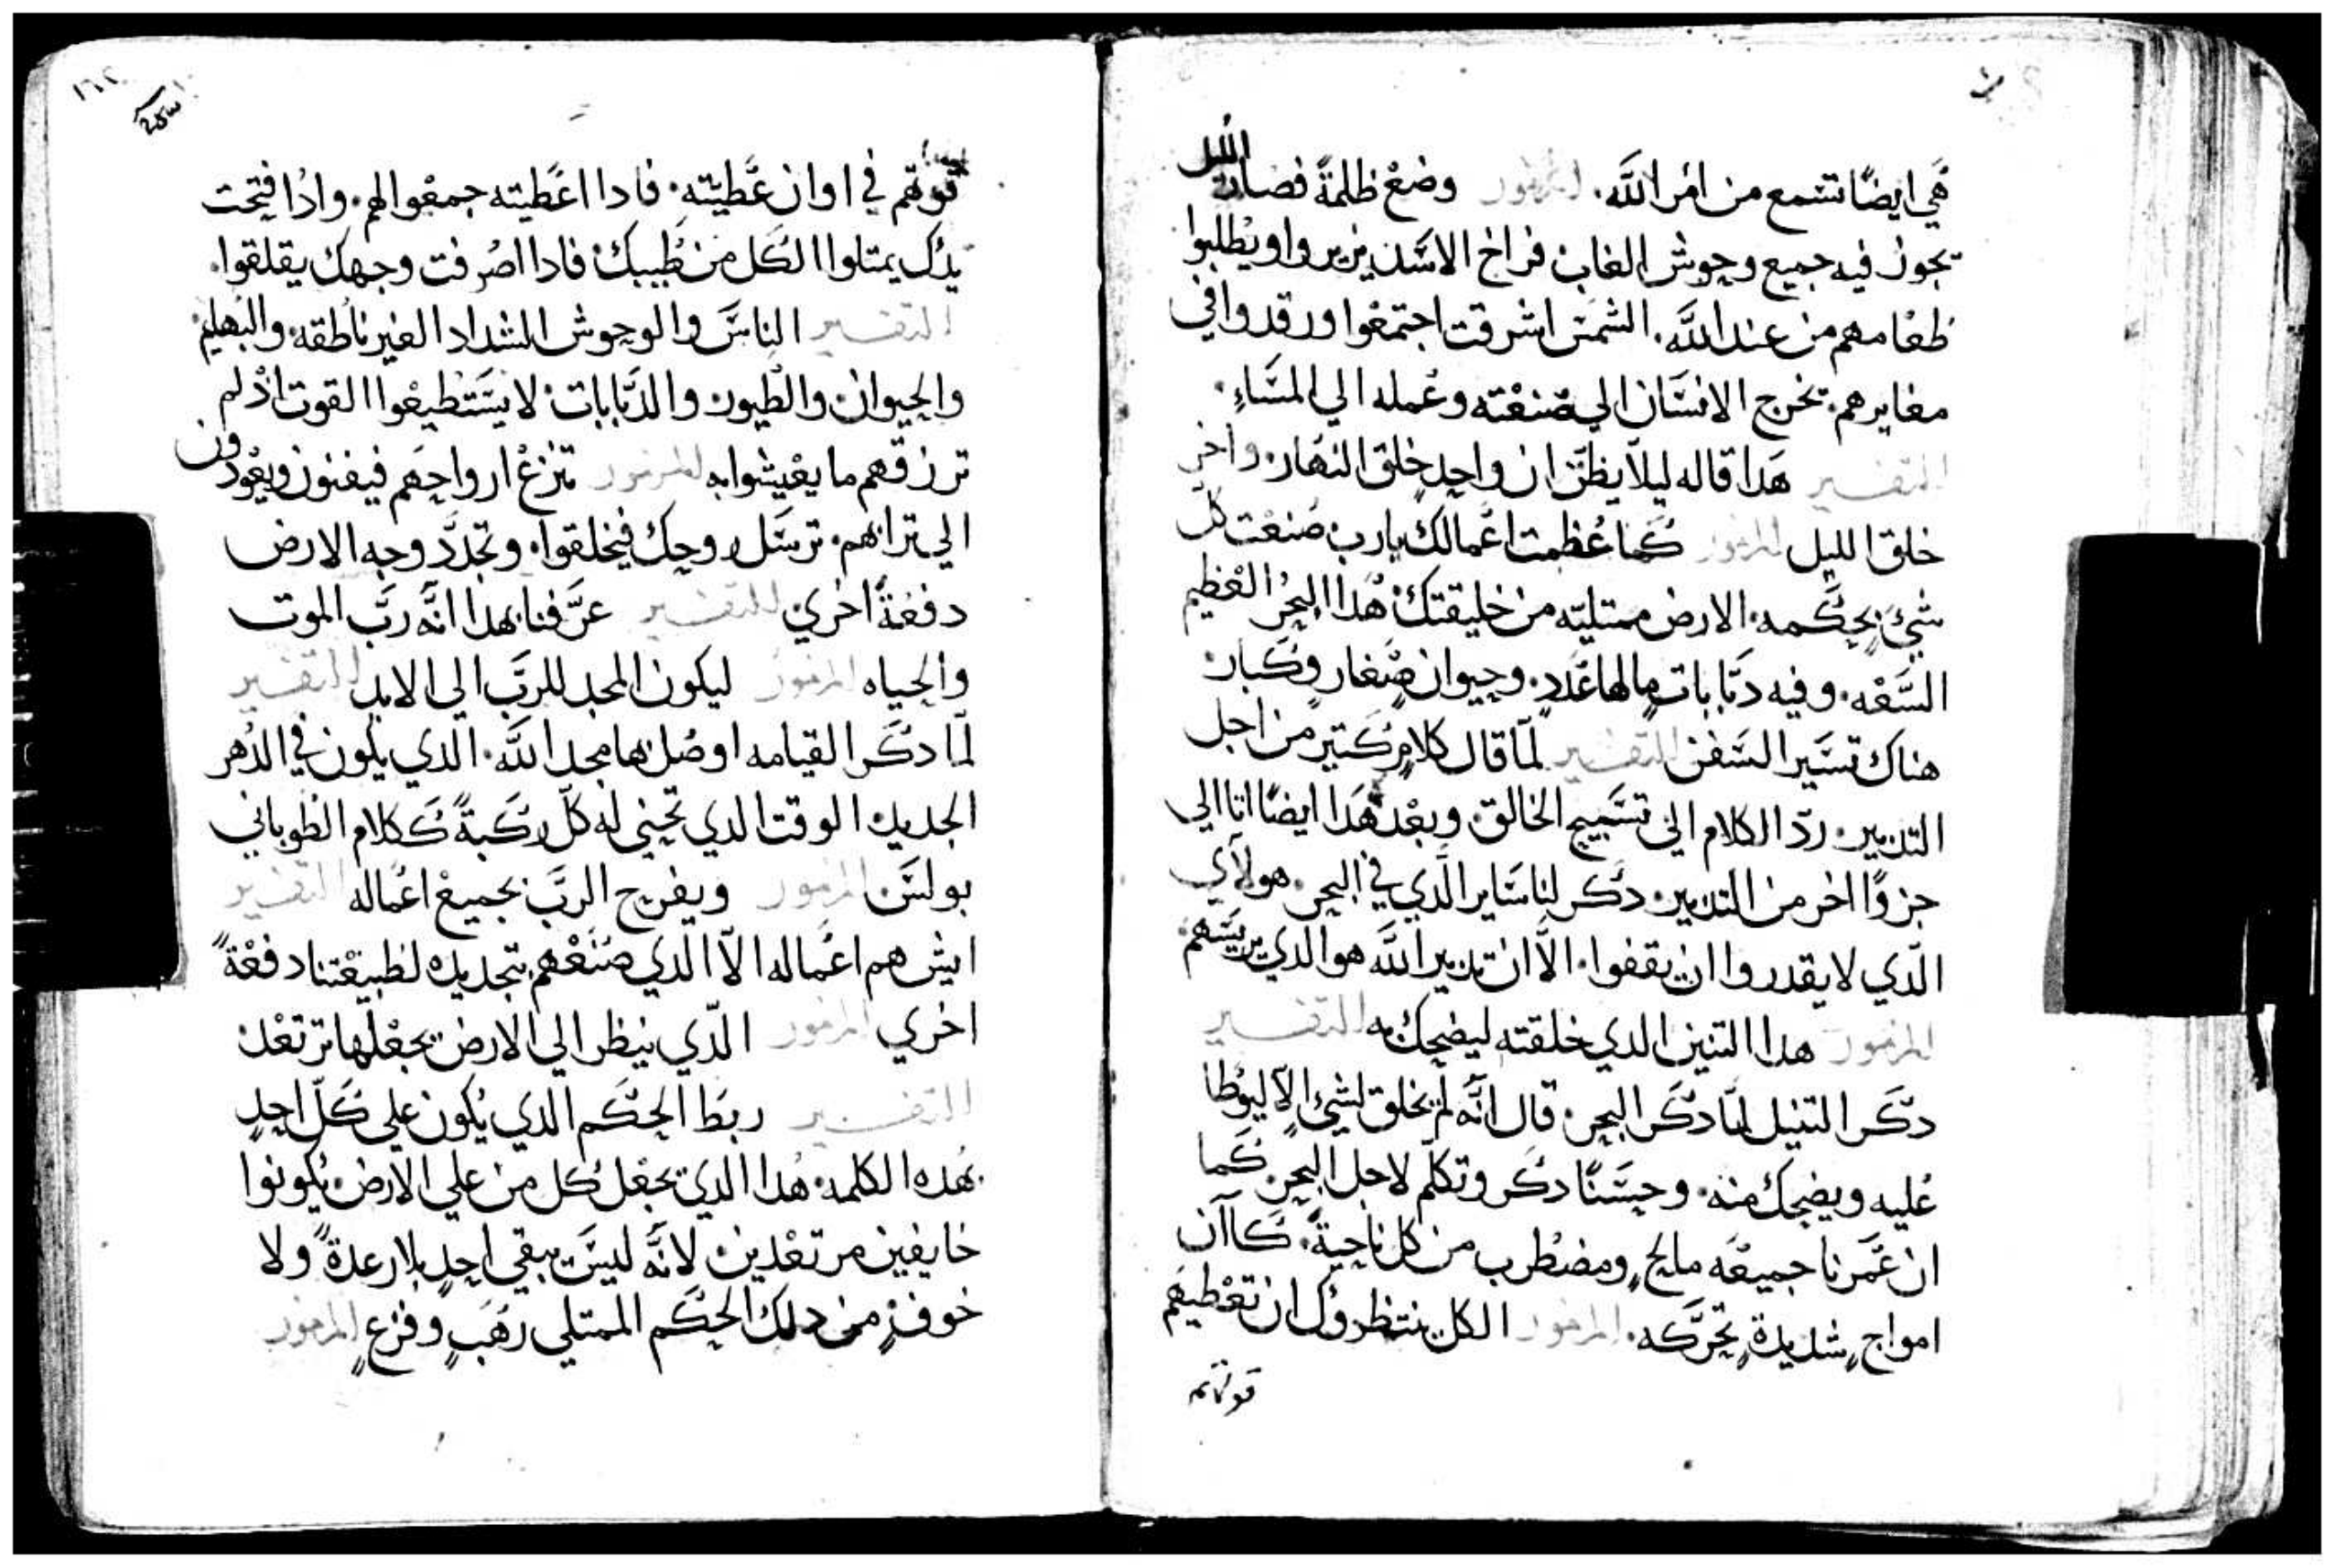 هي ايضًا تسمع من امر الله. المزمور وضع ظلمةً فصار الليل
يجوز فيه جميع وحوش الغاب. فراخ الاسد يزيروا ويطلبوا
طعامهم من عند الله. الشمس اشرقت اجتمعوا ورقدوا في
مغايرهم. يخرج الانسان الي صنعته وعمله الي المساء.
التفسير هدا قاله ليلا يظن ان واحد خلق النهار. واخر
خلق الليل المزمور كما عظمت اعمالك يارب صنعت كل
شيء بحكمه. الارض ممتليه من خليقتك. هدا البحر العظيم
السعه. وفيه دبابات مالها عدد. وحيوان صغار وكبار
هناك تسير السفن التفسير لما قال كلام كتير من اجل
التدبير. رد الكلام الي تسبيح الخالق. وبعد هدا ايضًا اتا الي
جزوًا اخر من التدبير. دكر لنا ساير الدي في البحر. هولاي
الدي لا يقدروا ان يقفوا. الا ان تدبير الله هو الدي يريسهم
المزمور هدا التنين الدي خلقته ليضحك به التفسير
دكر التنيل لما دكر البحر. قال انه لم يخلق لشي الا ليوطا
عليه ويضحك منه. وحسنًا دكر وتكلم لاجل البحر. كما
ان عمرنا جميعه مالح ومضطرب من كل ناحية. كان
امواج شديدة تحركه. المزمور الكل ينتظروك ان تعطيهم
قوتهم
١٦٢
قوتهم في اوان عطيته. فادا اعطيته جمعوا لهم. وادا فتحت
يدك يمتلوا الكل من طيبك. فادا اصرفت وجهك يقلقوا.
التفسير الناس والوحوش الشداد الغير ناطقه والبهايم
والحيوان والطيور والدبابات. لا يستطيعوا القوت اذ لم
ترزقهم ما يعيشوا به المزمور تنزع ارواحهم فيفنون ويعودون
الي ترابهم. ترسل روحك فيخلقوا. وتجدد وجه الارض
دفعةً اخري التفسير عرفنا بهدا انه رب الموت
والحياه المزمور ليكون المجد للرب الي الابد التفسير
لما دكر القيامه اوصل بها مجد الله. الدي يكون في الدهر
الجديد. الوقت الدي تحني له كل ركبةً ككلام الطوباني
بولس المزمور ويفرح الرب بجميع اعماله التفسير
ايش هم اعماله الا الدي صنعهم بتجديده لطبيعتنا دفعةً
اخري المزمور الدي ينظر الي الارض يجعلها ترتعد
التفسير ربط الحكم الدي يكون علي كل احد
بهده الكلمه. هدا الدي يجعل كل من علي الارض يكونوا
خايفين مرتعدين. لانه ليس يبقي احد بلا رعدةً ولا
خوف من دلك الحكم الممتلي رهب وفزع المزمور